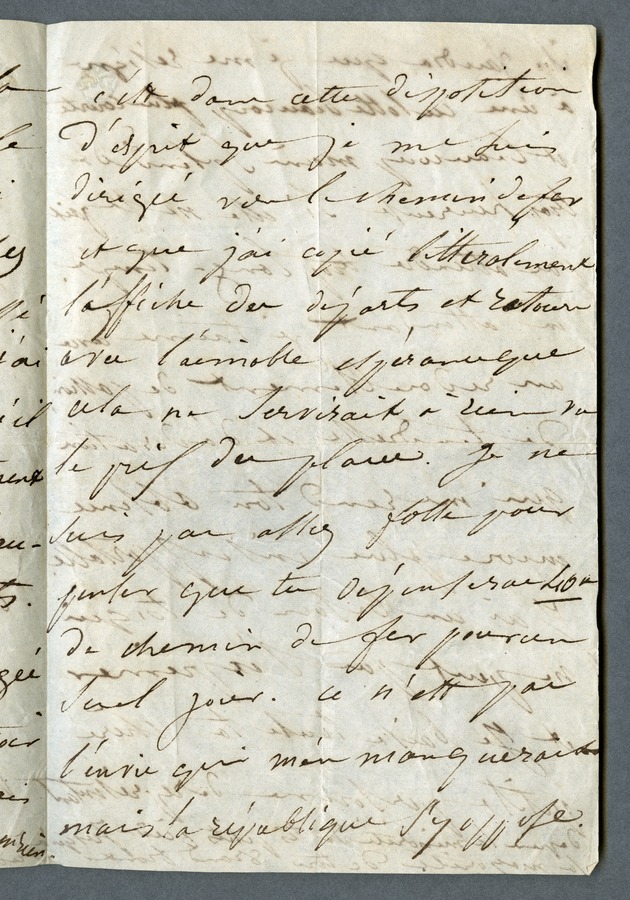 c'est dans cette disposition
d'esprit que je me suis
dirigié vers le chemin de fer
et que j'ai copié litteralement
l'affiche des départs et retours
avec l'aimable espérance que
cela ne servirait à rien vu
le prix des places. Je ne
suis pas assez folle pour
penser que tu dépenserais 40 F
de chemin de fer pour un
seul jour. ce n'est pas
l'envie qui m'en manquerait
mais la république s'y oppose.